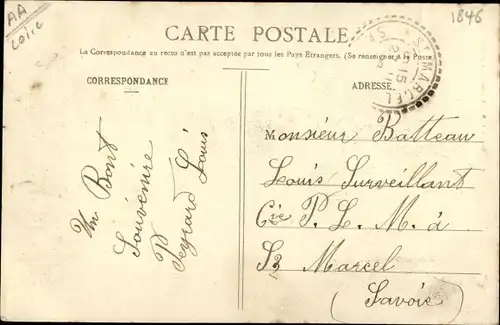 AA
Loire
1846
CARTE POSTALE
La Correspondance au recto n'est pas acceptée par tous les Pays Etrangers. (Se renseigner à la Poste)
CORRESPONDANCE
ADRESSE
ST MARCEL
15
Un Bont
Souvenire
Peyrard Louis
Monsieur Batteau
Louis Surveillant
Cie P. L. M. à
St Marcel
(Savoie)